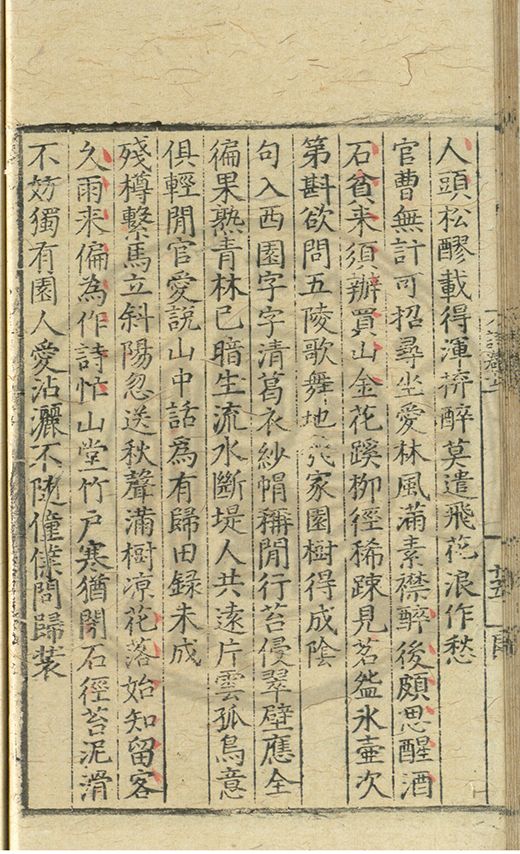 人頭松醪載得渾拚醉莫遣飛花浪作愁
官曹無計可招尋坐愛林風滿素襟醉後頗思醒酒
石貧来須辦買山金花蹊柳徑稀踈見茗盌氷壷次
第斟欲問五陵歌舞地 家園樹得成陰
句入西園字字清葛衣紗㡌稱閒行苔侵翠壁應全
徧果熟青林已暗生流水斷堤人共遠片雲孤鳥意
俱輕閒官愛説山中話為有歸田録未成
殘樽繫馬立斜陽忽送秋聲滿樹凉花落始知留客
久雨来偏為作詩忙山堂竹戸寒猶閉石徑苔泥滑
不妨獨有園人愛沾灑不随僮僕問歸装